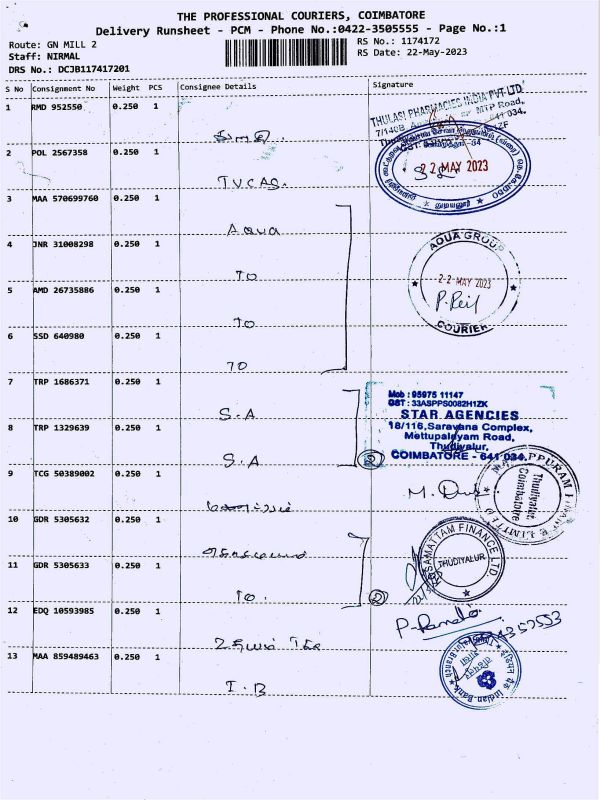 THE PROFESSIONAL COURIERS, COIMBATORE
Delivery Runsheet - PCM - Phone No.:0422-3505555 - Page No.:1
Route: GN MILL 2
RS No.: 1174172
Staff: NIRMAL
RS Date: 22-May-2023
DRS No.: DCJB117417201
S No Consignment No Weight PCS Consignee Details Signature
1 RMD 952550 0.250 1
THULASI PHARMACIES INDIA PVT LTD
MTP Road,
2 POL 2567358 0.250 1 TVCAS.
22 MAY 2023
3 MAA 570699760 0.250 1 Aqua
4 JNR 31008298 0.250 1 TO
AQUA GROUP
22 MAY 2023
COURIER
5 AMD 26735886 0.250 1 TO
6 SSD 640980 0.250 1 TO
7 TRP 1686371 0.250 1 S.A
Mob : 95975 11147
GST : 33ASPPS0082H1ZK
STAR AGENCIES
18/116,Saravana Complex,
Mettupalayam Road,
Thudiyalur,
COIMBATORE - 641 034.
8 TRP 1329639 0.250 1 S.A
2
9 TCG 50389002 0.250 1
Thudiyalur,
Coimbatore
10 GDR 5305632 0.250 1
THUDIYALUR
11 GDR 5305633 0.250 1 TO.
2
12 EDQ 10593985 0.250 1
13 MAA 859489463 0.250 1 I.B
Indian Bank